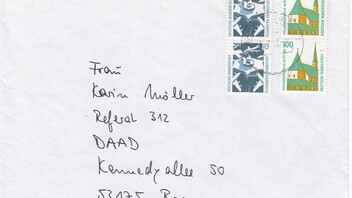 Frau
Karin Möller
Referat 312
DAAD
Kennedyallee 50
53175
100